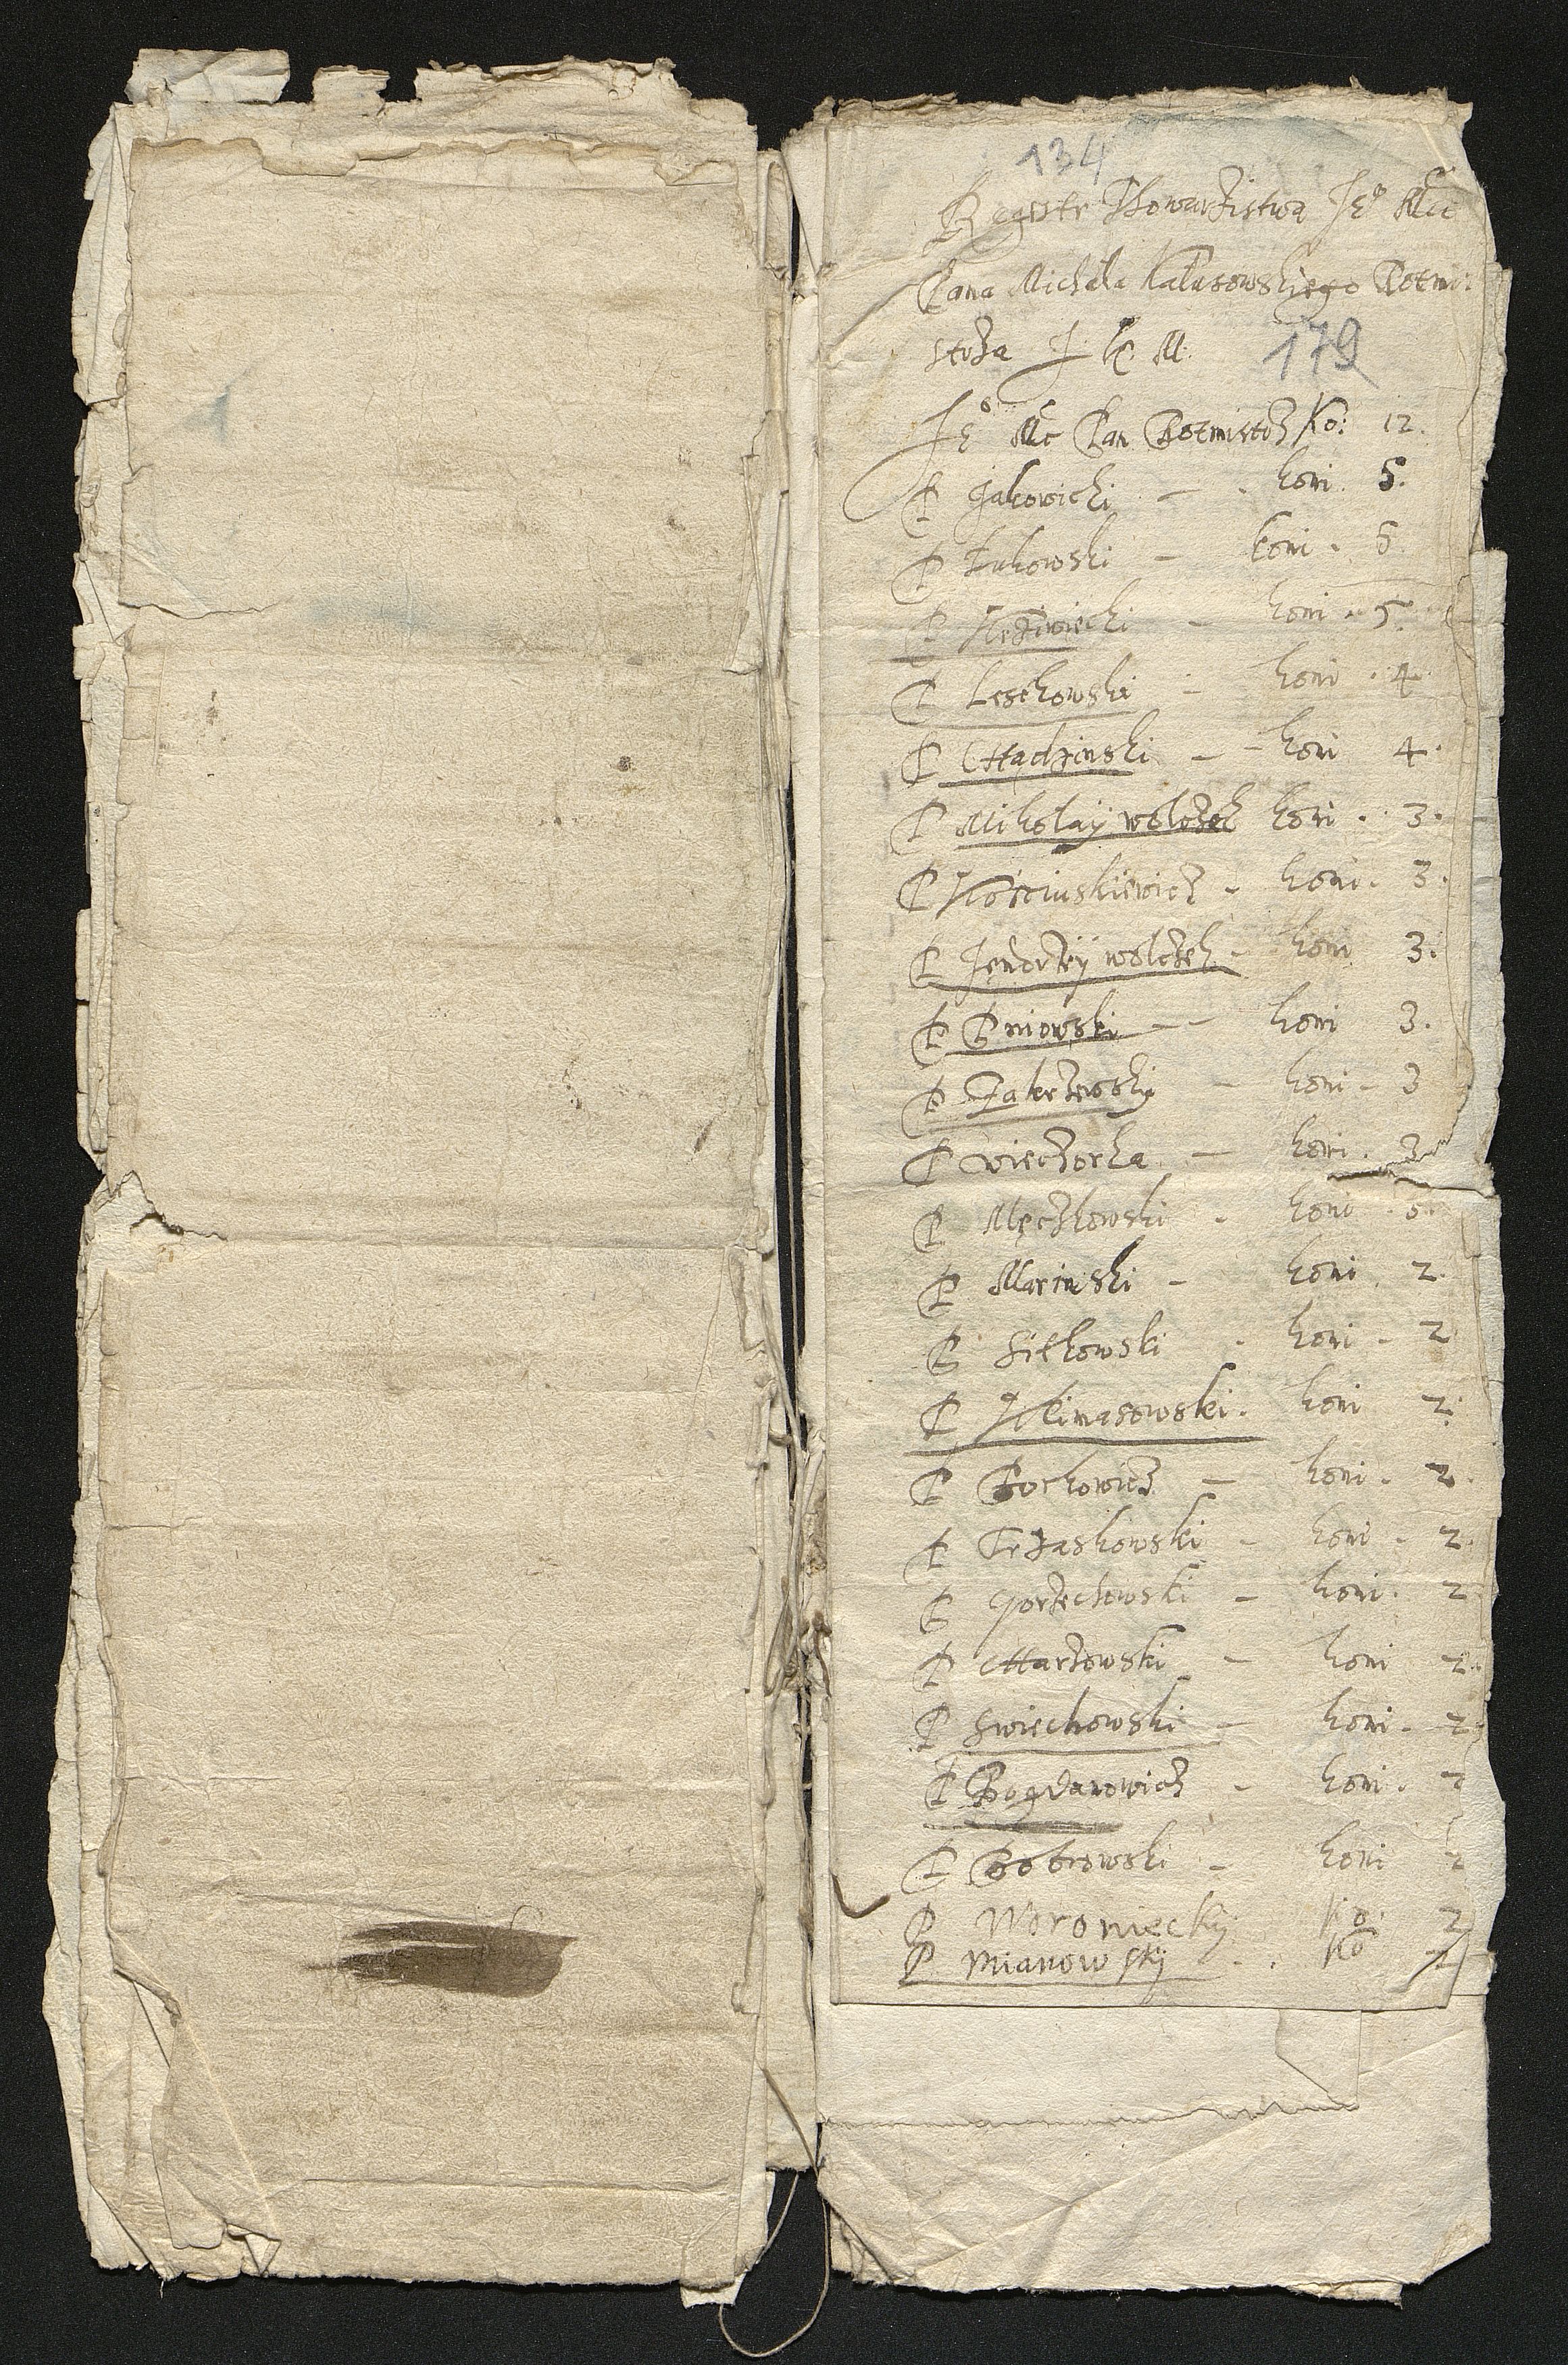 134
Regestr Thowarzistwa Je° Mći
Pana Michała Kalusowskiego Rotmi:
strza J. K. M.
179
Je° Mć Pan Rotmistrz Ko: 12.
P Jakowicki — . koni 5.
P Zukowski — koni . 5
P — koni . 5.
P Leskowski — koni . 4
P — — koni 4.
P Mikołaÿ wołczek koni . 3.
P Kosciuskiewicz . koni . 3.
P Jendrzÿ wolczek — koni 3.
P Gniowski — — koni 3.
P Zakrzewsky — koni — 3
P wieczorka — koni . 3
P Męczkowski . koni . 3.
P — koni 2.
P Sitkowski . koni — 2
P Klimasowski . koni 2.
P — koni . 2.
P Trzaskowski — koni . 2.
P Gorzechowski — koni . 2
P — koni 2.
P Swiechowski — koni . 2
P Bogdanowicz — koni . 2
P Bobrowski — koni 2
P Woroniecky Ko. 2
P Mianowsky . . Ko 2